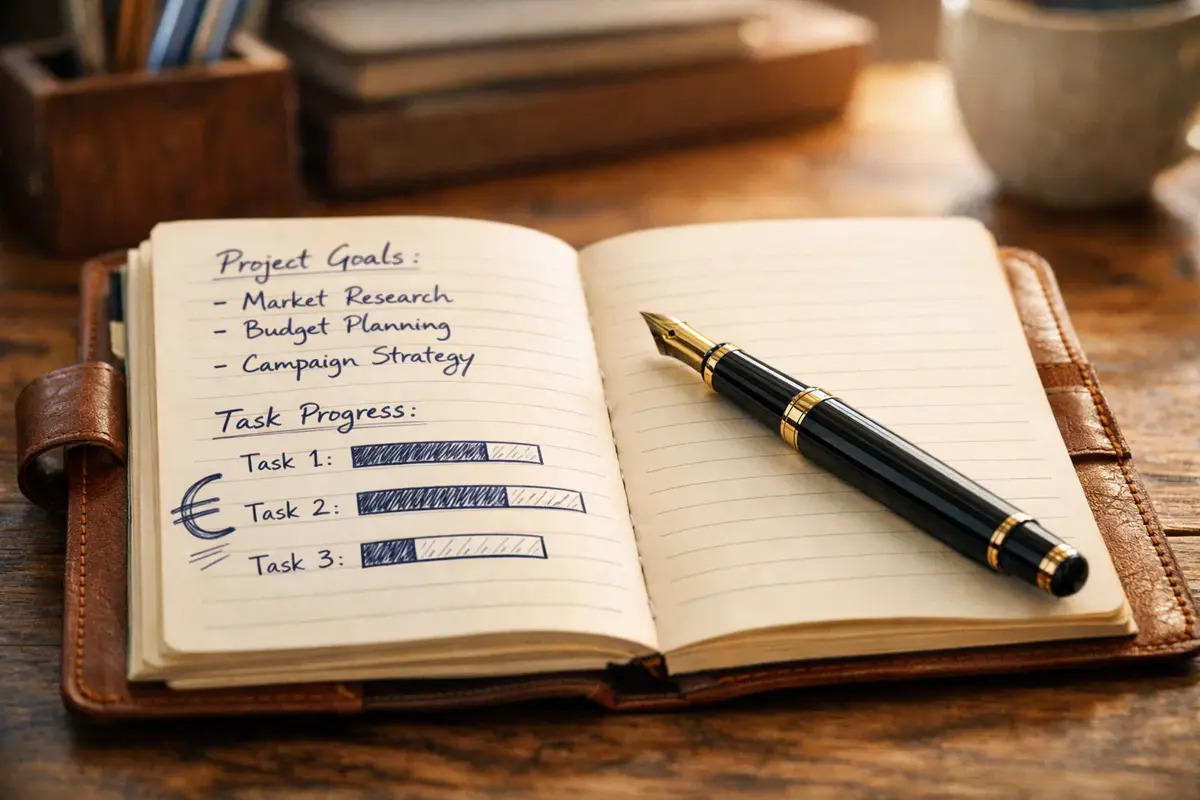 Project Goals:
- Market Research
- Budget Planning
- Campaign Strategy
Task Progress:
Task 1:
€
Task 2:
Task 3: